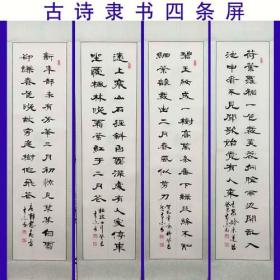 古诗隶书四条屏
荷葉羅裙一色裁芙蓉向臉兩邊開亂入
池中看不見聞歌始覺有人來
碧玉妝成一樹高萬條垂下綠絲絛不知
細葉誰裁出二月春風似剪刀
遠上寒山石徑斜白雲深處有人家停車
坐愛楓林晚霜葉紅于二月花
新年都未有芳華二月初驚見草芽白雪
却嫌春色晚故穿庭樹作飛花